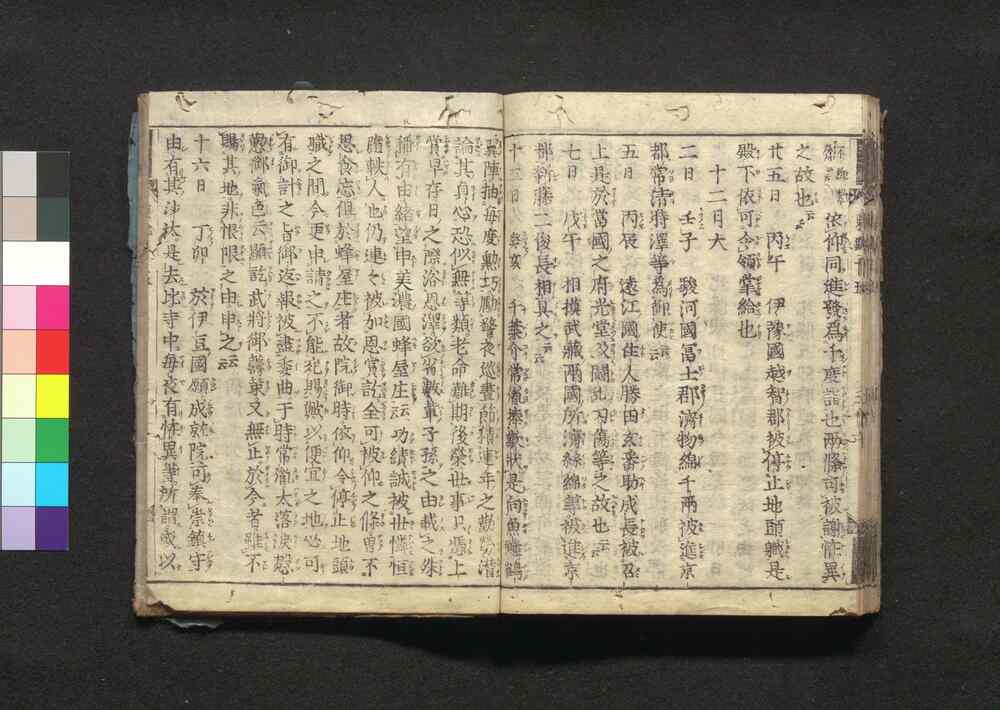 依仰同進發為千度詣也兩條可被謝怪異
之故也云云
廿五日　丙午　伊豫國越智郡被停止地頭職是
殿下依可令領掌給也
十二月大
二日　壬子　駿河國冨士郡濟物綿千兩被進京
郡常清時澤等為御使云云
五日　丙辰　遠江國住人勝田玄番助成長被召
上是於當國之府光堂及鬪乱刃傷等之故也云云
七日　戊午　相摸武藏兩國所濟絲綿等被進京
都新藤二俊長相具之云云
十三日　辛亥　千葉介常胤捧欵狀是向魚鱗鶴
翼陣抽毎度勲巧勵警夜巡晝節積連年之勤勞潜
論其貞心恐似無等類老命難期後榮世事只憑上
賞早存日之際浴恩澤欲省數輩子孫之由載之殊
稱有由緒望申美濃國蜂屋庄云云功績誠被世懺恒
膽軼人也仍連々被加恩賞訖全可被仰之條曽不
思食忘但於蜂屋庄者故院御時依仰令停止地頭
職之間今更申請之不能宛賜歟以便宜之地必可
有御計之旨御返報被盡委曲于時常胤太落淚懸
愚御氣色云顯詫武將御孫葉又無止於今者雖不
賜其地非恨限之由申之云云
十六日　丁卯　於伊豆國願成就院可奉崇鎮守
由有其沙汰是去比寺中毎夜有恠異等所謂或以